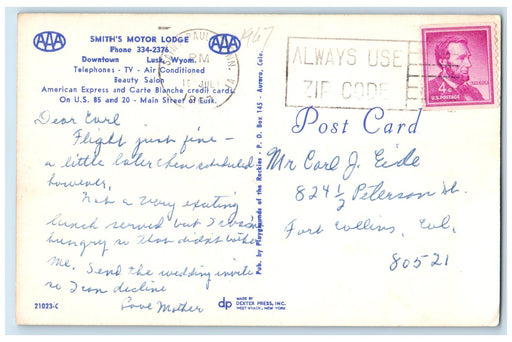 AAA
SMITH'S MOTOR LODGE
AAA
Phone 334-2376
Downtown Lusk, Wyom.
Telephones - TV - Air Conditioned
Beauty Salon
American Express and Carte Blanche credit cards.
On U.S. 85 and 20 - Main Street of Lusk.
Dear Carl
Flight just fine -
a little later then scheduled
however,
Not a very exciting
lunch served but I wasn't
hungry so that didn't bother
me. Send the wedding invite
so I can decline
Love Mother
21023-C
Pub. by Playgrounds of the Rockies - P. O. Box 145 - Aurora, Colo.
1967
PM
ALWAYS USE
ZIP CODE
4¢
U.S. POSTAGE
Post Card
Mr Carl J. Eide
824 1/2 Peterson St.
Fort Collins, Col.
80521
dp
MADE BY
DEXTER PRESS, INC.
WEST NYACK, NEW YORK